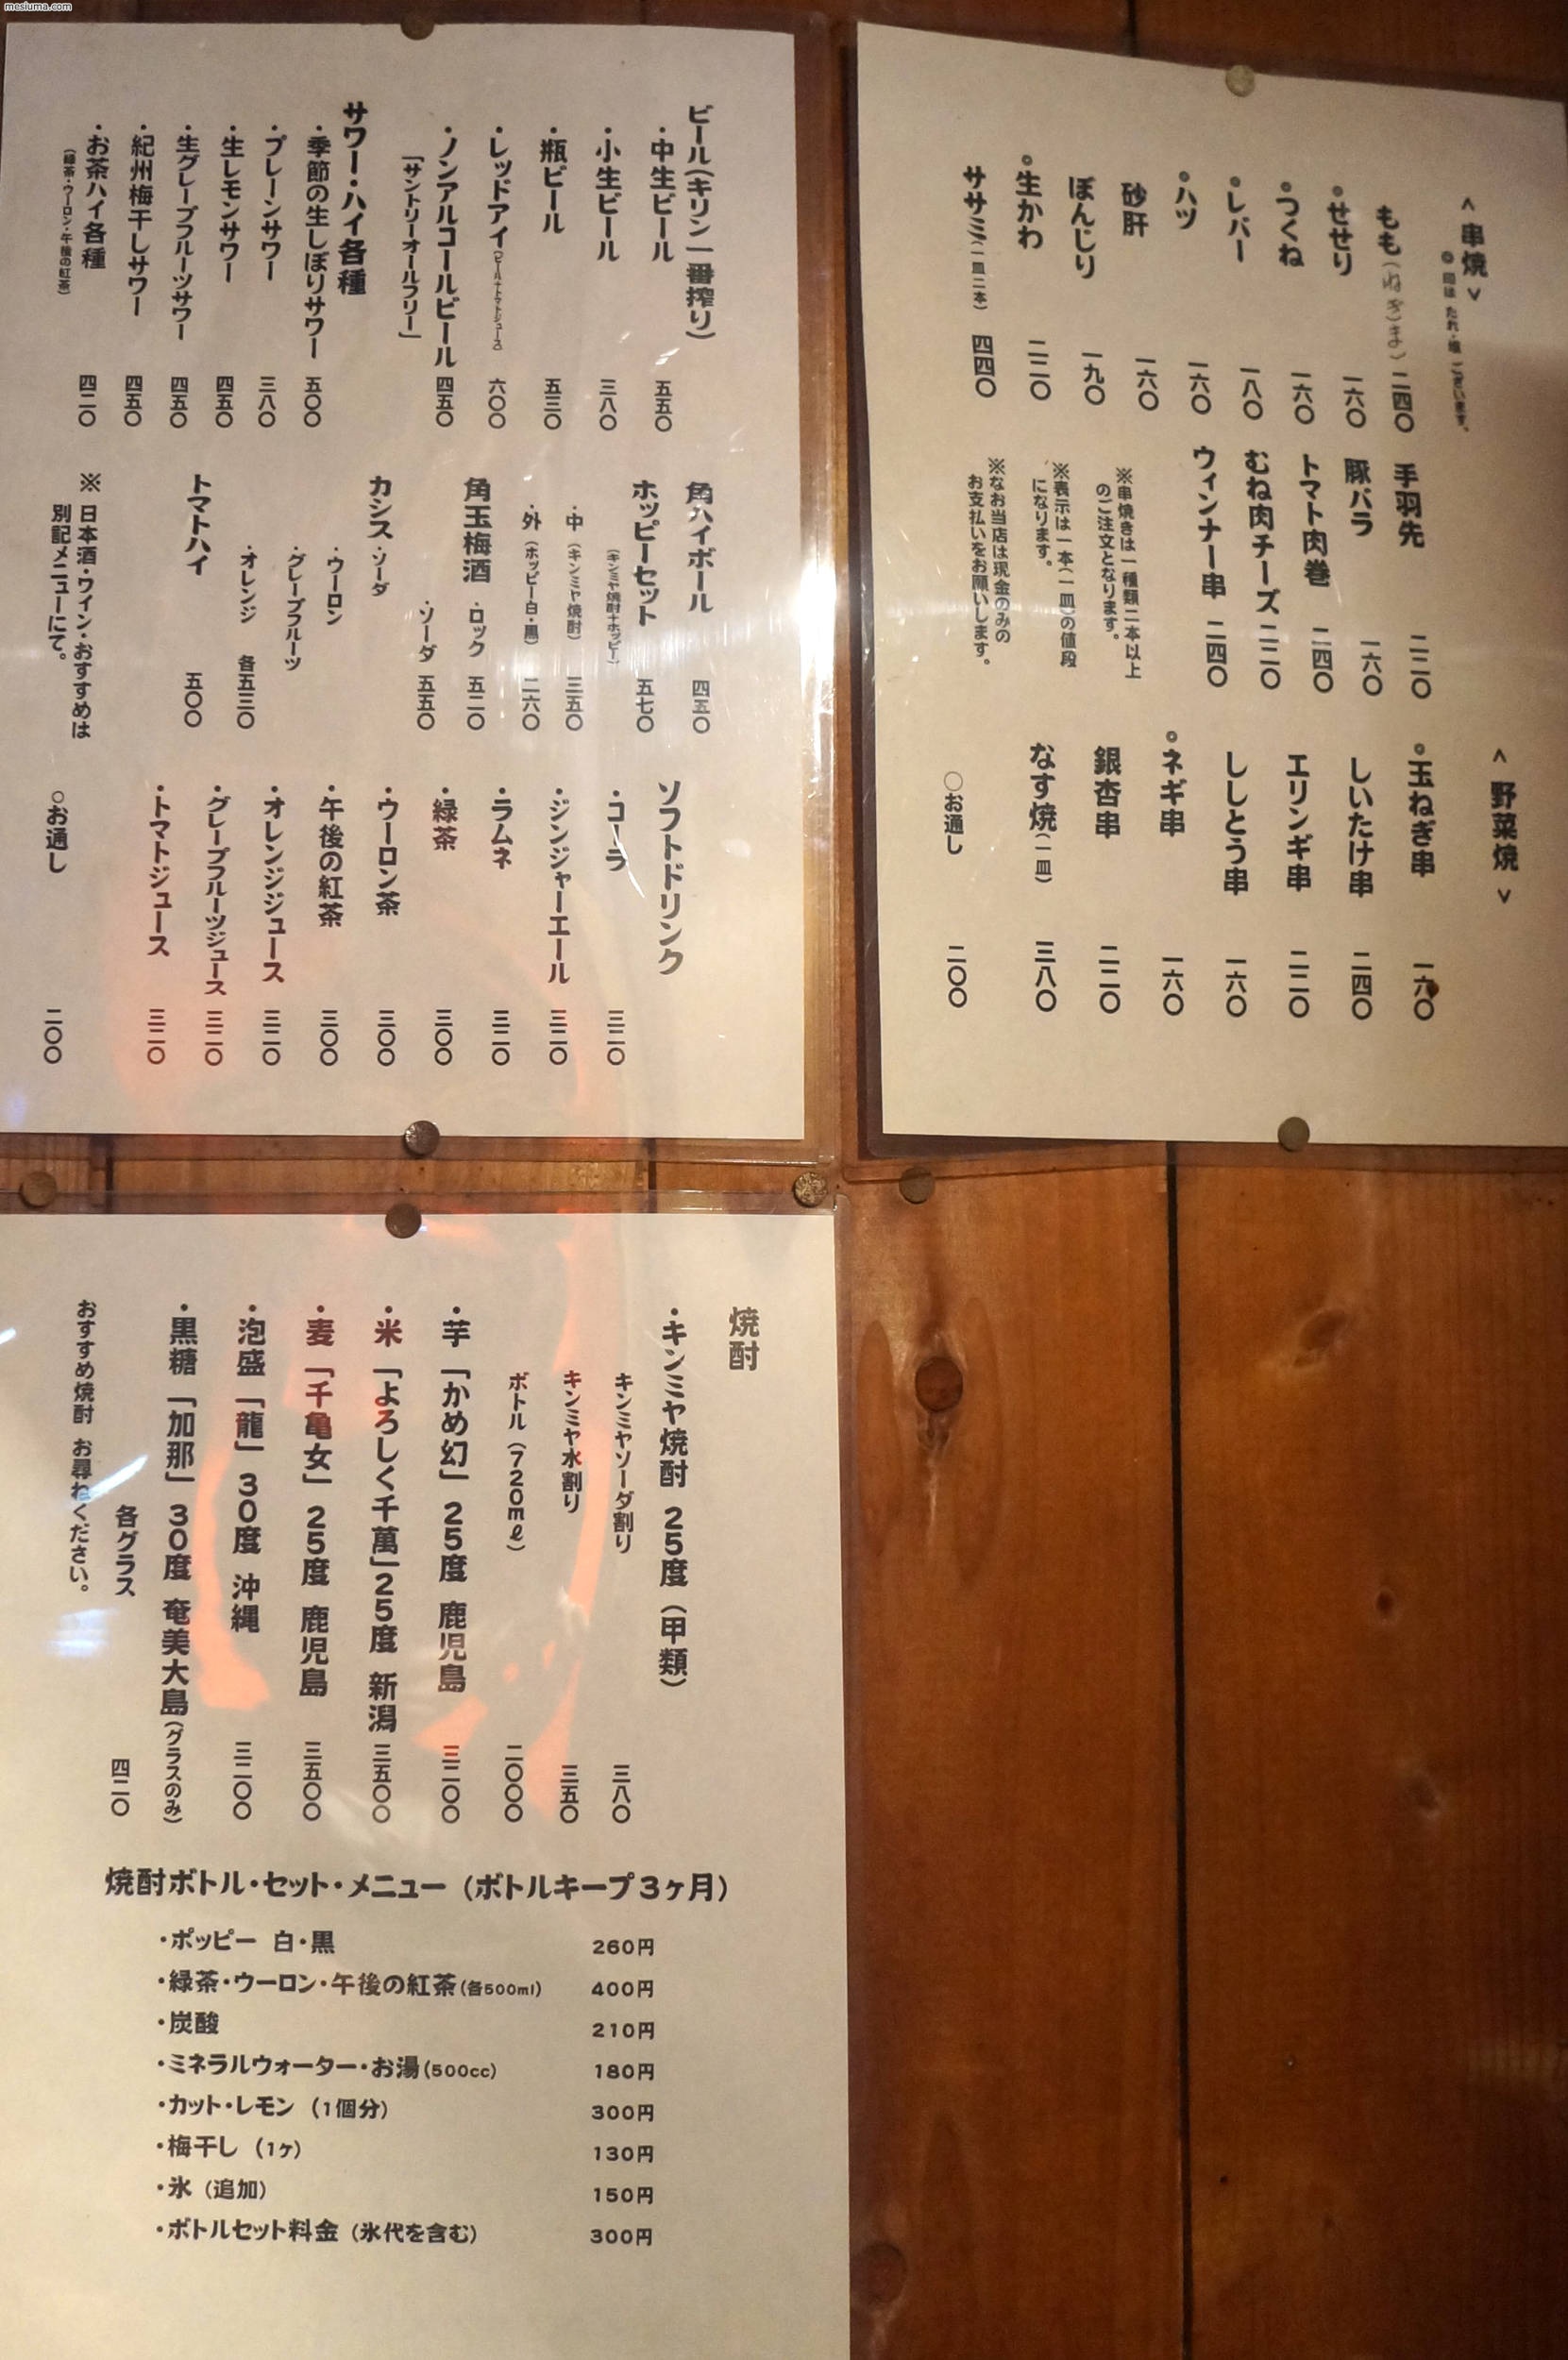 mesiuma.com
<串焼>
◎印は たれ・塩 ございます。
もも(ねぎま) 二四〇
◎せせり 一六〇
◎つくね 一六〇
◎レバー 一八〇
◎ハツ 一六〇
砂肝 一六〇
ぼんじり 一九〇
◎生かわ 二二〇
ササミ(一皿二本) 四四〇
手羽先 二二〇
豚バラ 一六〇
トマト肉巻 二四〇
むね肉チーズ 二二〇
ウィンナー串 二四〇
※串焼きは一種類二本以上
のご注文となります。
※表示は一本(一皿)の値段
になります。
※なお当店は現金のみの
お支払いをお願いします。
<野菜焼>
◎玉ねぎ串 一六〇
しいたけ串 二四〇
エリンギ串 二二〇
ししとう串 一六〇
◎ネギ串 一六〇
銀杏串 二二〇
なす焼(一皿) 三八〇
○お通し 二〇〇
ビール(キリン一番搾り)
・中生ビール 五五〇
・小生ビール 三八〇
・瓶ビール 五三〇
・レッドアイ(ビール+トマトジュース) 六〇〇
・ノンアルコールビール 四五〇
「サントリーオールフリー」
サワー・ハイ各種
・季節の生しぼりサワー 五〇〇
・プレーンサワー 三八〇
・生レモンサワー 四五〇
・生グレープフルーツサワー 四五〇
・紀州梅干しサワー 四五〇
・お茶ハイ各種 四二〇
(緑茶・ウーロン・午後の紅茶)
角ハイボール 四五〇
ホッピーセット 五七〇
(キンミヤ焼酎+ホッピー)
・中(キンミヤ焼酎) 三五〇
・外(ホッピー白・黒) 二六〇
角玉梅酒 ・ロック 五二〇
・ソーダ 五五〇
カシス ・ソーダ
・ウーロン
・グレープフルーツ
・オレンジ 各五三〇
トマトハイ 五〇〇
※日本酒・ワイン・おすすめは
別記メニューにて。
ソフトドリンク
・コーラ 三二〇
・ジンジャーエール 三二〇
・ラムネ 三二〇
・緑茶 三〇〇
・ウーロン茶 三〇〇
・午後の紅茶 三〇〇
・オレンジジュース 三二〇
・グレープフルーツジュース 三二〇
・トマトジュース 三二〇
○お通し 二〇〇
焼酎
・キンミヤ焼酎 25度(甲類)
キンミヤソーダ割り 三八〇
キンミヤ水割り 三五〇
ボトル(720mℓ) 二〇〇〇
・芋「かめ幻」25度 鹿児島 三二〇〇
・米「よろしく千萬」25度 新潟 三五〇〇
・麦「千亀女」25度 鹿児島 三五〇〇
・泡盛「龍」30度 沖縄 三二〇〇
・黒糖「加那」30度 奄美大島(グラスのみ)
各グラス 四二〇
おすすめ焼酎 お尋ねください。
焼酎ボトル・セット・メニュー(ボトルキープ3ヶ月)
・ポッピー 白・黒 260円
・緑茶・ウーロン・午後の紅茶(各500ml) 400円
・炭酸 210円
・ミネラルウォーター・お湯(500cc) 180円
・カット・レモン (1個分) 300円
・梅干し (1ヶ) 130円
・氷 (追加) 150円
・ボトルセット料金 (氷代を含む) 300円